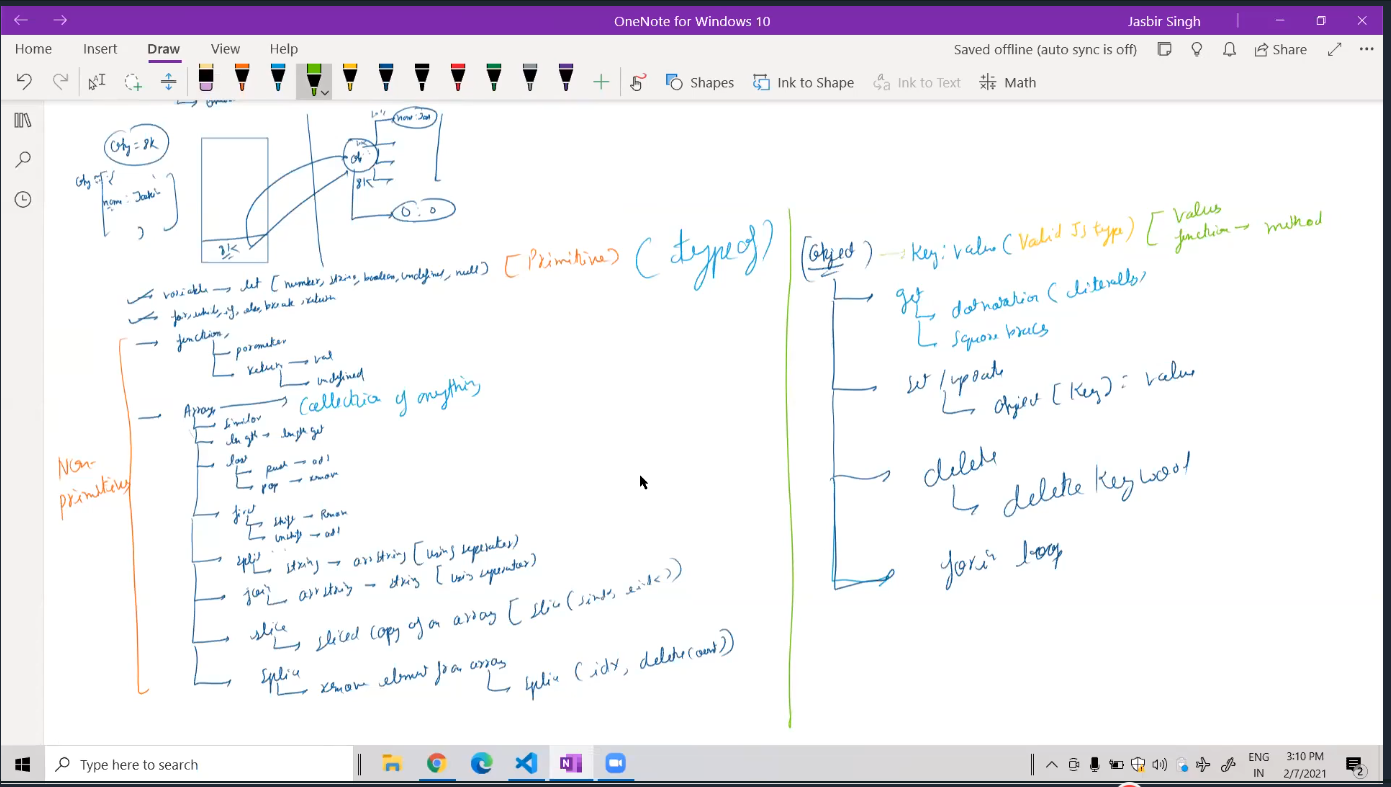 OneNote for Windows 10
Jasbir Singh
Home Insert Draw View Help
Saved offline (auto sync is off)
Share
Shapes
Ink to Shape
Ink to Text
Math
Obj = 8K
8K
8K
variable → let [number, string, boolean, undefined, null) [Primitive) (typeof)
for, while, if, else, break, return
function,
parameter
return → val
undefined
Non-
primitive
Array → Collection of anything
similar
length → length get
last
push → add
pop → remove
first
shift → Remove
unshift → add
split
string → arr string [using seperator)
join
arr string → string [using seperator)
slice
sliced copy of an array [slice(sindx, eidx))
splice
remove element from array
splice (idx, deleteCount))
[Object) → Key: value (Valid JS type) [value
function → method
get
dot notation (literally
square braces
set / update
object [key) = value
delete
delete keyword
forin loop
Type here to search
ENG
IN
3:10 PM
2/7/2021
2